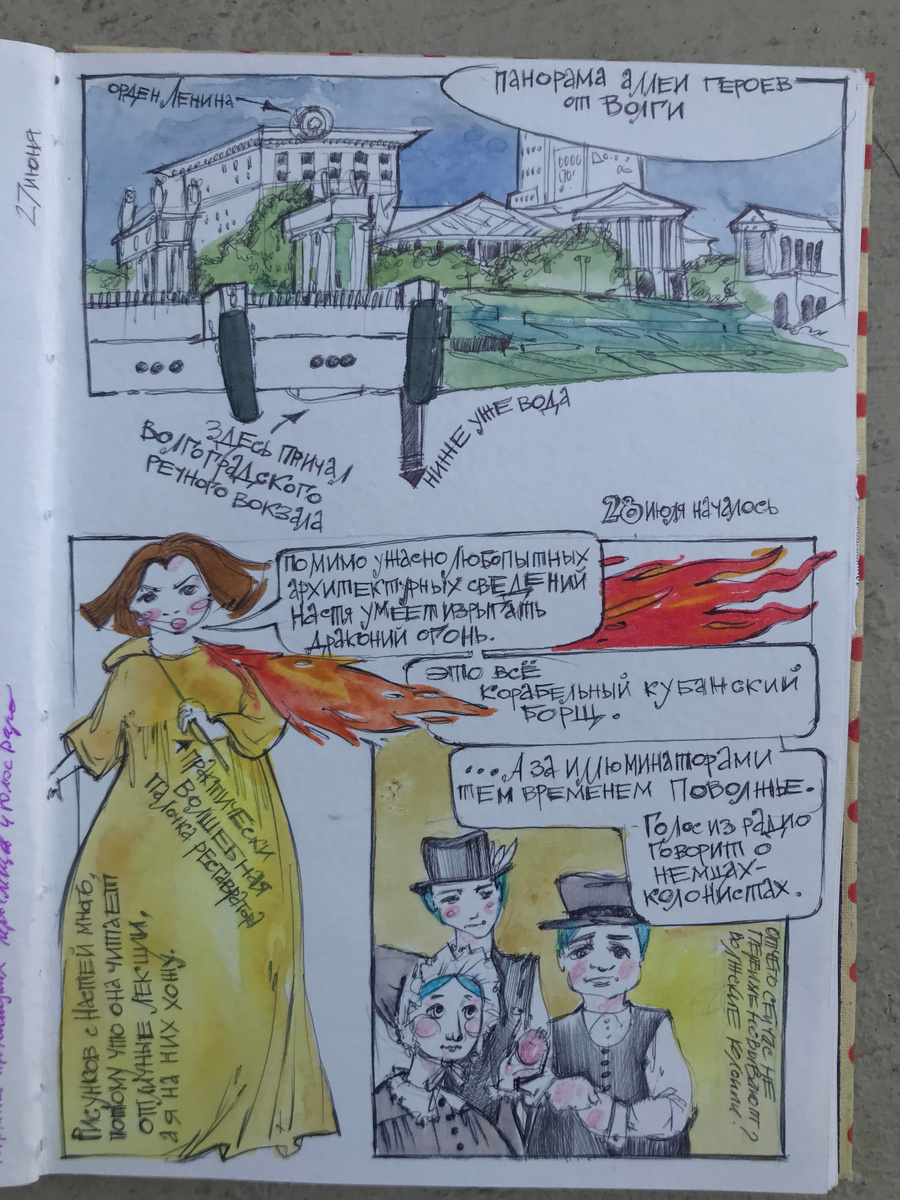 27 июня
ОРДЕН ЛЕНИНА
ПАНОРАМА АЛЛЕИ ГЕРОЕВ
ОТ ВОЛГИ
ЗДЕСЬ ПРИЧАЛ
ВОЛГОГРАДСКОГО
РЕЧНОГО ВОКЗАЛА
НИЖЕ УЖЕ ВОДА
28 ИЮЛЯ НАЧАЛОСЬ
ПОМИМО УЖАСНО ЛЮБОПЫТНЫХ
АРХИТЕКТУРНЫХ СВЕДЕНИЙ
НАСТЯ УМЕЕТ ИЗРЫГАТЬ
ДРАКОНИЙ ОГОНЬ.
ЭТО ВСЁ
КОРАБЕЛЬНЫЙ КУБАНСКИЙ
БОРЩ.
...А ЗА ИЛЛЮМИНАТОРАМИ
ТЕМ ВРЕМЕНЕМ ПОВОЛЖЬЕ.
ГОЛОС ИЗ РАДИО
ГОВОРИТ О
НЕМЦАХ-
КОЛОНИСТАХ.
ПРАКТИЧЕСКИ
ВОЛШЕБНАЯ
ПАЛОЧКА РЕСТАВРАТОРА
РИСУНКОВ С НАСТЕЙ МНОГО,
ПОТОМУ ЧТО ОНА ЧИТАЕТ
ОТЛИЧНЫЕ ЛЕКЦИИ,
А Я НА НИХ ХОЖУ.
ОТЧЕГО СЕЙЧАС НЕ
ВОЛЖСКИЕ КОЛОНИИ?
и голос